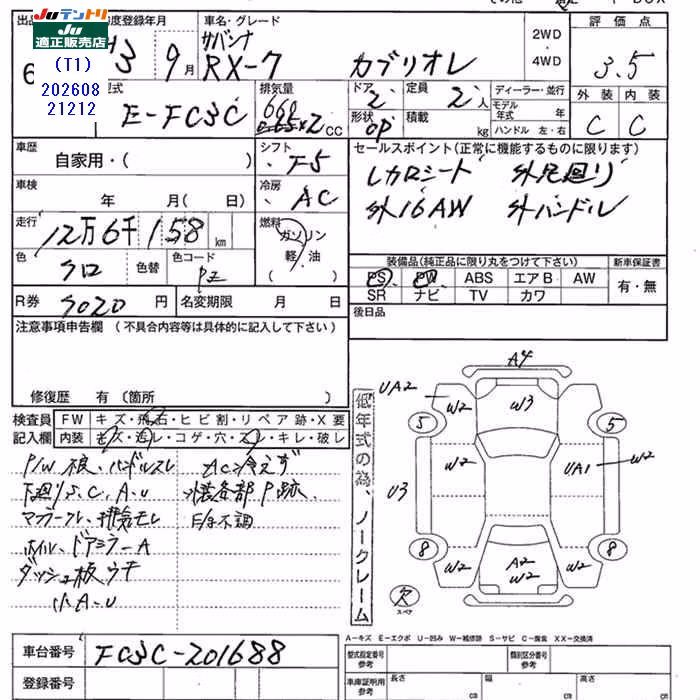 Juテントリ
Ju適正販売店
(T1)
202608
21212
初度登録年月
H3 9月
車名・グレード
サバンナ
RX-7 カブリオレ
2WD
4WD
評価点
3.5
外装 内装
C C
型式
E-FC3C
排気量
CC
ドア 2
定員 2人
形状 OP
積載 kg
ディーラー・並行
モデル年式 年
ハンドル 左・右
車歴
自家用・( )
シフト
F5
車検
年 月( 日)
冷房
AC
セールスポイント(正常に機能するものに限ります)
レカロシート 外足廻り
外16AW 外ハンドル
走行
12万6千158km
燃料
ガソリン
軽・油
色
クロ
色替
色コード
PZ
装備品(純正品に限り丸をつけて下さい)
PS PW ABS エアB AW
SR ナビ TV カワ
新車保証書
有・無
R券
9020円
名変期限 月 日
後日品
注意事項申告欄 (不具合内容等は具体的に記入して下さい)
修復歴 有(箇所 )
検査員
記入欄
FW キズ・飛石・ヒビ割・リペア跡・X要
内装 キズ・汚レ・コゲ・穴・スレ・キレ・破レ
P/W根、ハンドルスレ
下廻りS、C、A、U
マフラーフレ、排気モレ
ホイル、ドアミラーA
ダッシュ板ウキ
小A、U
AC冷えず
外装各部P跡
E/g不調
低年式の為、ノークレーム
A4
UA2
W2
W3
W2
5
5
W2
UA1
W2
U3
8
8
W2
A2
W2
W2
欠
スペア
A-キズ E-エクボ U-凹み W-補修跡 S-サビ C-腐食 XX-交換済
車台番号
FC3C-201688
登録番号
型式指定番号
参考
類別区分番号
参考
車庫証明用
参考
長さ cm
幅 cm
高さ cm